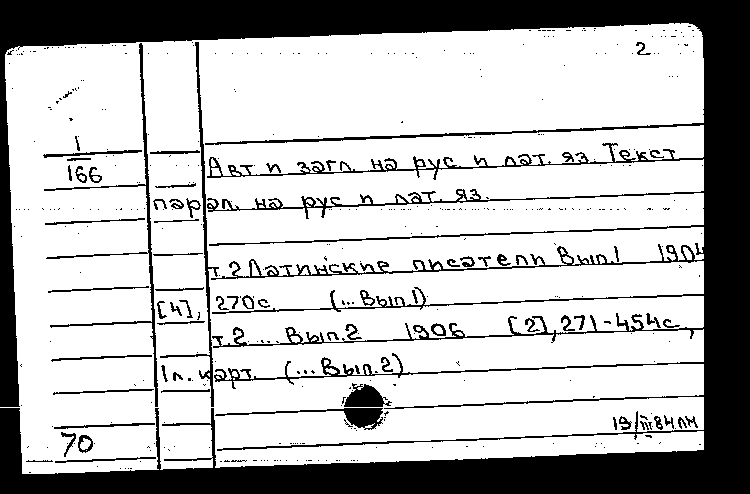 2
1
166
Авт и загл. на рус и лат. яз. Текст
парал. на рус и лат. яз.
т.2 Латинские писатели Вып.1 1904
[4], 270с. (...Вып.1)
т.2 ... Вып.2 1906 [2], 271-454с,
1л. карт. (...Вып.2)
19/III 84 ЛМ
70